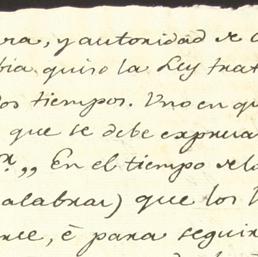 ra, y autoridad de
bia quiso la Ley trat
dos tiempos. Uno en qu
que se debe expresa
n. „ En el tiempo de la
alabrar) que los
arse, è para seguir